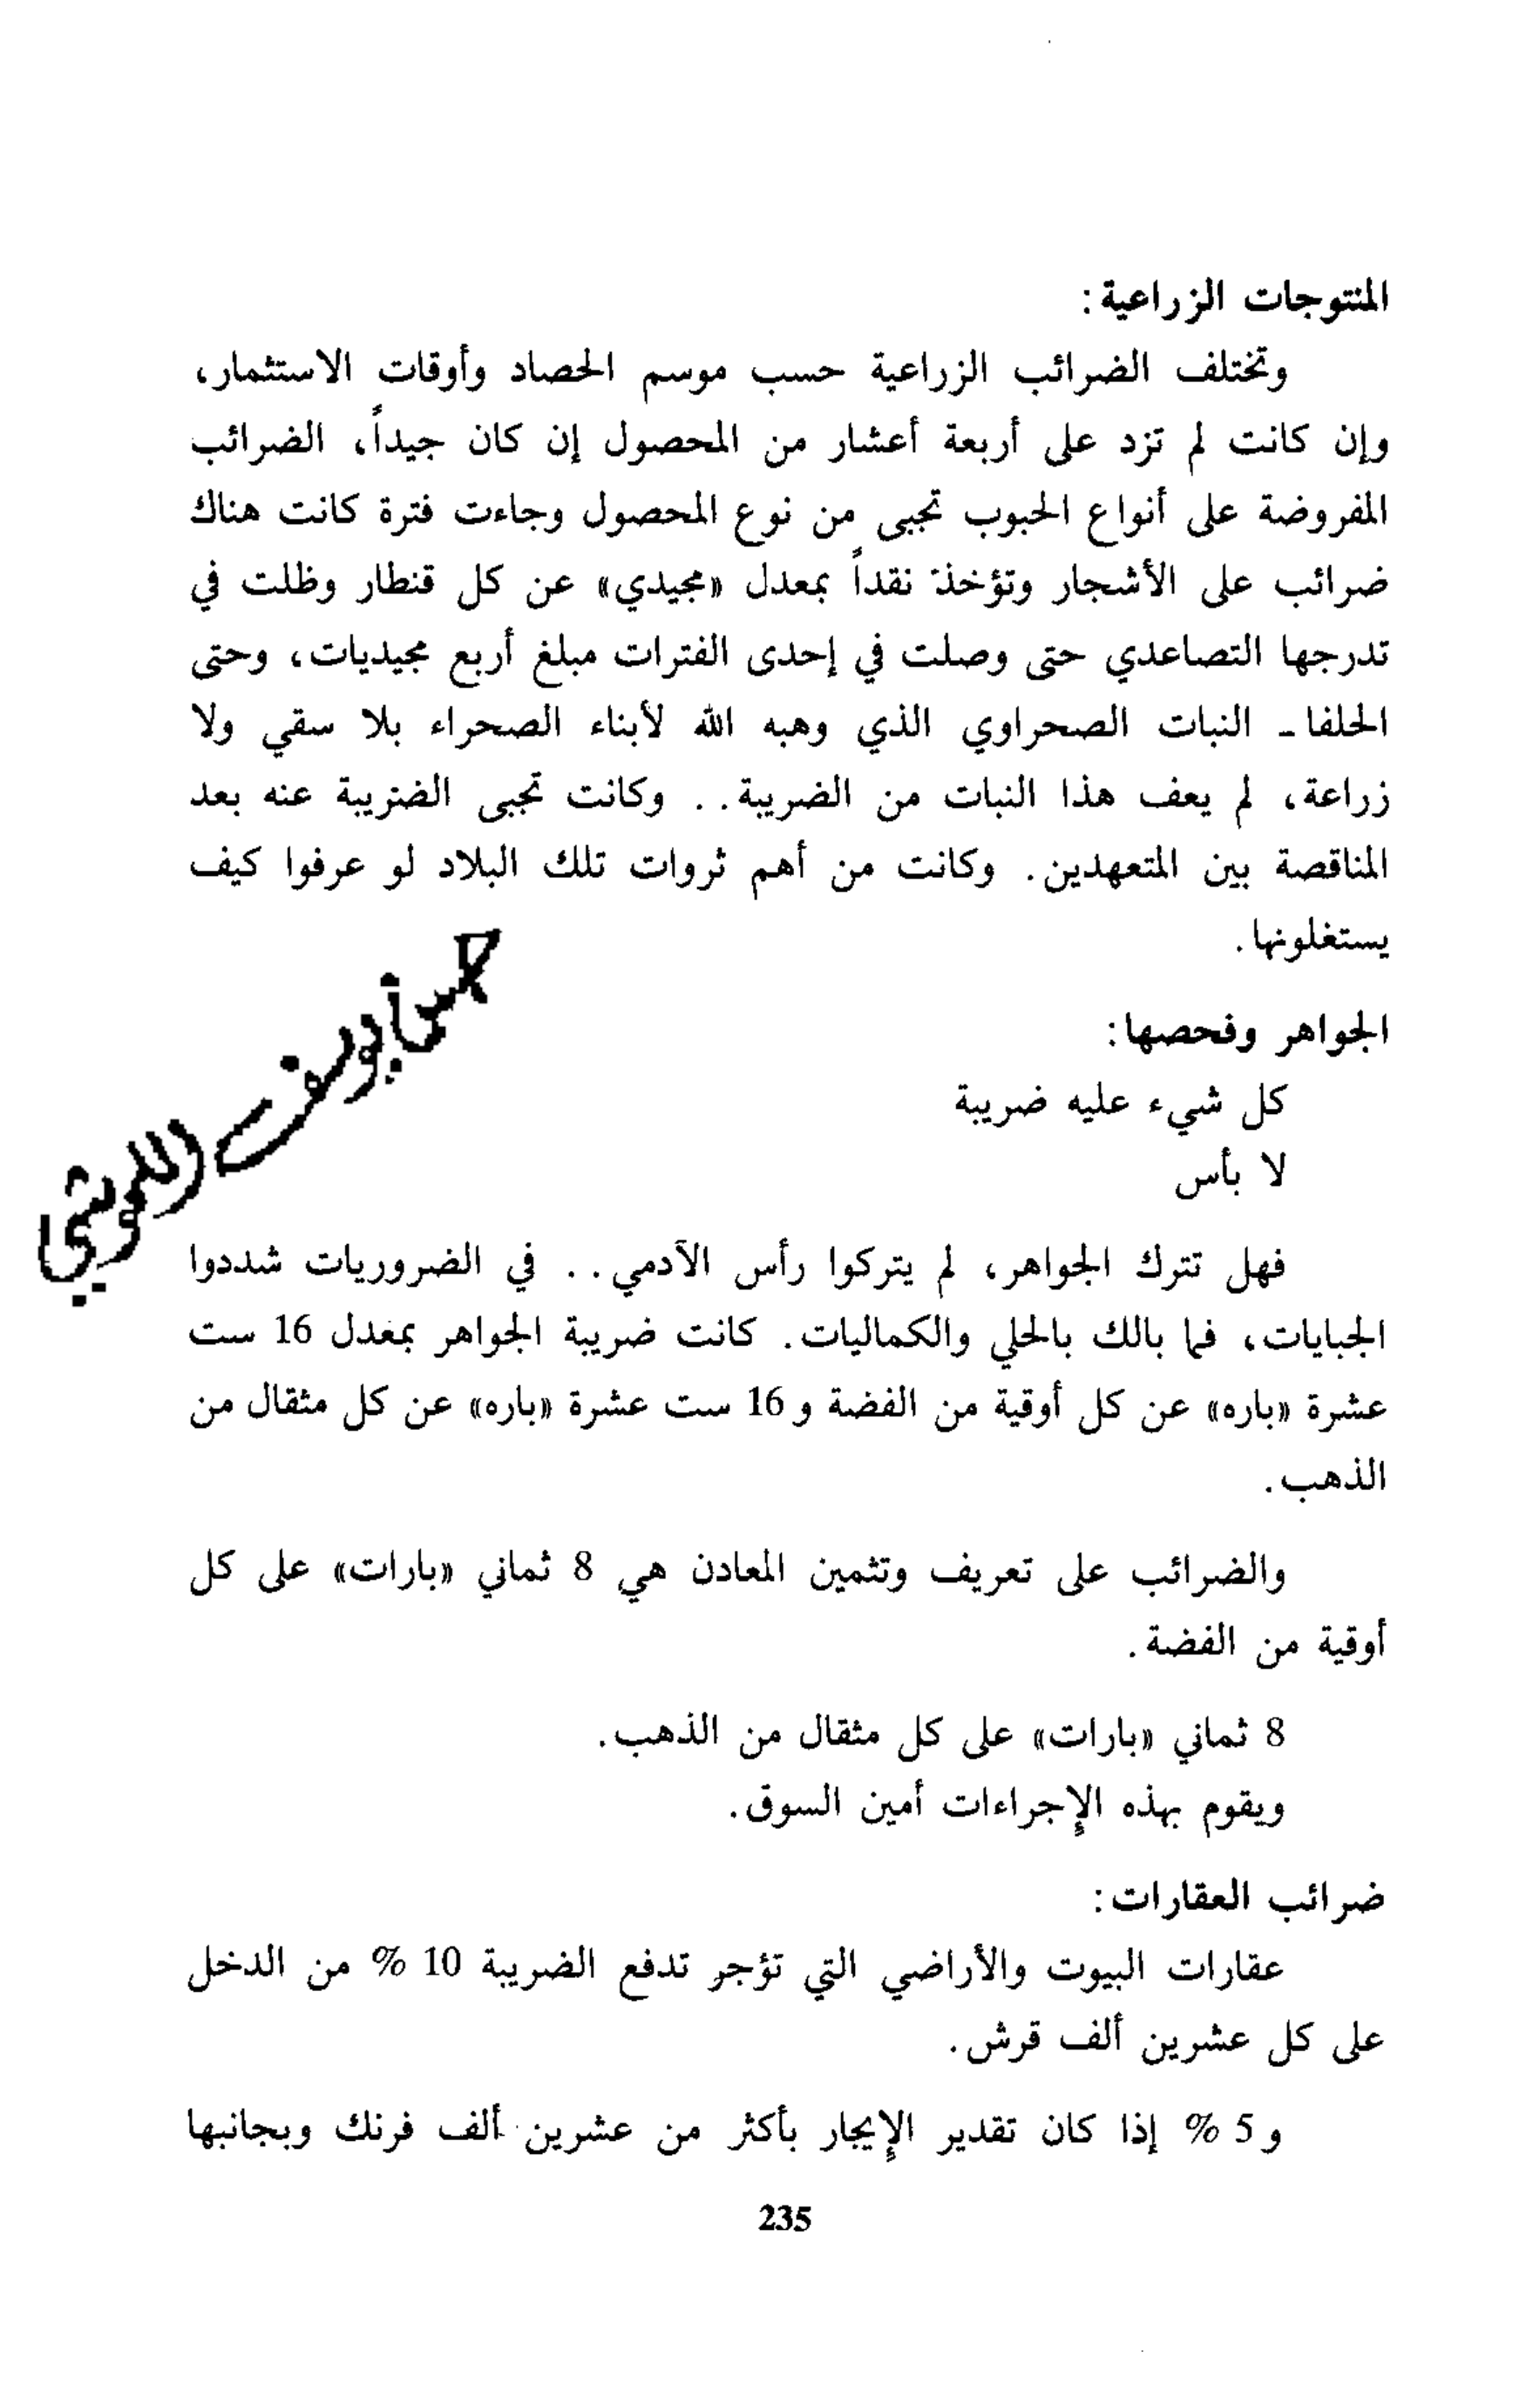 المنتوجات الزراعية:
وتختلف الضرائب الزراعية حسب موسم الحصاد وأوقات الاستثمار،
وإن كانت لم تزد على أربعة أعشار من المحصول إن كان جيداً، الضرائب
المفروضة على أنواع الحبوب تجبى من نوع المحصول وجاءت فترة كانت هناك
ضرائب على الأشجار وتؤخذ نقداً بمعدل «مجيدي» عن كل قنطار وظلت في
تدرجها التصاعدي حتى وصلت في إحدى الفترات مبلغ أربع مجيديات، وحتى
الحلفا ـ النبات الصحراوي الذي وهبه الله لأبناء الصحراء بلا سقي ولا
زراعة، لم يعف هذا النبات من الضريبة.. وكانت تجبى الضريبة عنه بعد
المناقصة بين المتعهدين. وكانت من أهم ثروات تلك البلاد لو عرفوا كيف
يستغلونها.
الجواهر وفحصها:
كل شيء عليه ضريبة
لا بأس
فهل تترك الجواهر، لم يتركوا رأس الآدمي.. في الضروريات شددوا
الجبايات، فما بالك بالحلي والكماليات. كانت ضريبة الجواهر بمعدل 16 ست
عشرة «باره» عن كل أوقية من الفضة و 16 ست عشرة «باره» عن كل مثقال من
الذهب.
والضرائب على تعريف وتثمين المعادن هي 8 ثماني «بارات» على كل
أوقية من الفضة.
8 ثماني «بارات» على كل مثقال من الذهب.
ويقوم بهذه الإجراءات أمين السوق.
ضرائب العقارات:
عقارات البيوت والأراضي التي تؤجر تدفع الضريبة 10 % من الدخل
على كل عشرين ألف قرش.
و 5 % إذا كان تقدير الإيجار بأكثر من عشرين ألف فرنك وبجانبها
235